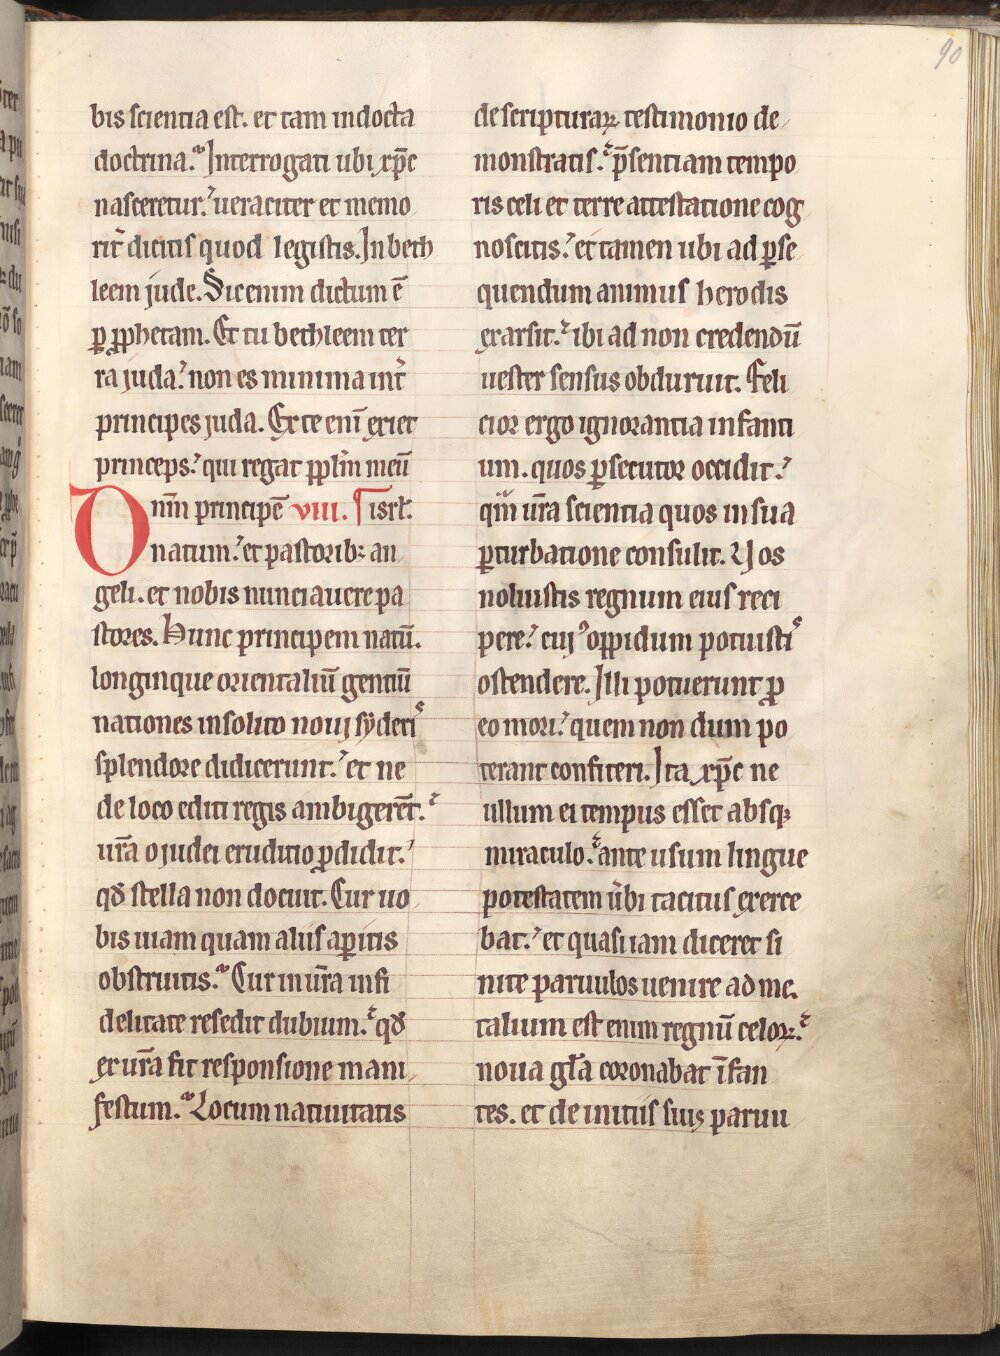 90
bis scientia est. et tam indocta
doctrina. Interrogati ubi xp̄c
nasceretur. ueraciter et memo
rit᷑ dicitis quod legistis. In beth
leem jude. Sic enim dictum ē
ꝑ ꝓphetam. Et tu bethleem ter
ra juda. non es minima int᷑
principes juda. Ex te eni᷒ exiet
princeps. qui regat ppl̄m meū
isrl̄. viii.
Onm̄ principē
natum. et pastoribꝫ an
geli. et nobis nunciauere pa
stores. Hunc principem natū.
longinque orientaliū gentiū
nationes insolito nouj syderis
splendore didicerunt. et ne
de loco editi regis ambigerēt.
ur̄a o judei eruditio ꝓdidit.
qđ stella non docuit. Cur uo
bis uiam quam aliis aꝑitis
obstruitis. Cur in ur̄a infi
delitate resedit dubium. qđ
ex ur̄a fit responsione mani
festum. Locum natiuitatis
de scripturaꝝ testimonio de
monstratis. p̄sentiam tempo
ris celi et terre attestatione cog
noscitis. et tamen ubi ad ꝑse
quendum animus herodis
exarsit. ibi ad non credendū
uester sensus obduruit. Feli
cior ergo ignorantia infanti
um. quos ꝑsecutor occidit.
qm̄ ur̄a scientia quos in sua
ꝑturbatione consulit. Uos
noluistis regnum eius reci
pere. cuj᾽ oppidum potuistis
ostendere. Illi potuerunt ꝓ
eo mori. quem non dum po
terant confiteri. Ita xp̄c ne
ullum ei tempus esset absqꝫ
miraculo. ante usum lingue
potestatem u̇bi tacitus exerce
bat. et quasi iam diceret si
nite paruulos uenire ad me.
talium est enim regnū celoꝝ.
noua gl̄a coronabat īfan
tes. et de initiis suis paruu